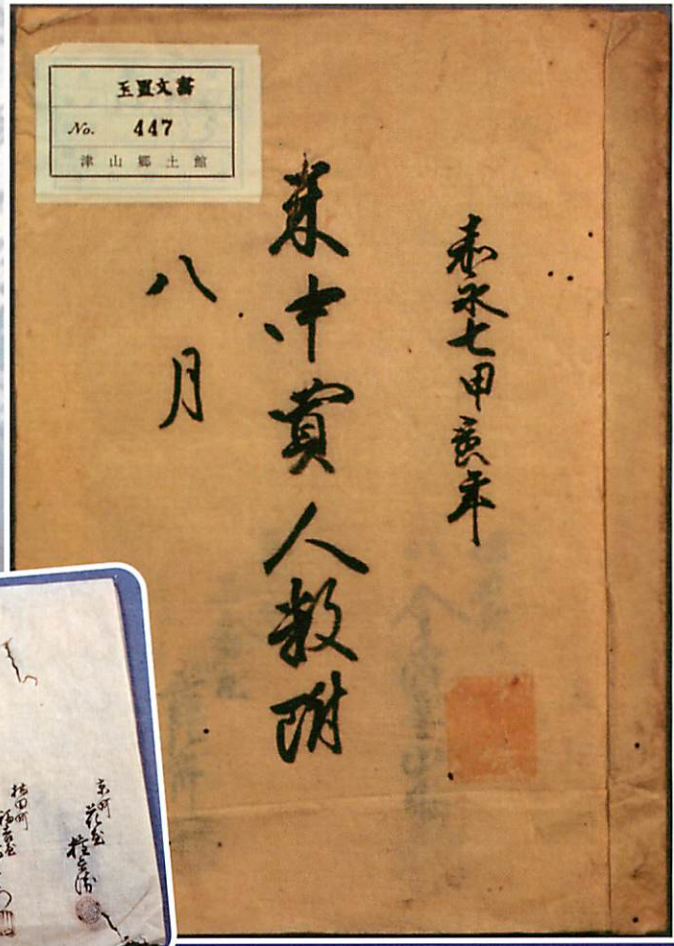 玉置文書
No. 447
津山郷土館
嘉永七甲寅年
米中買人数附
八月
京町
花屋